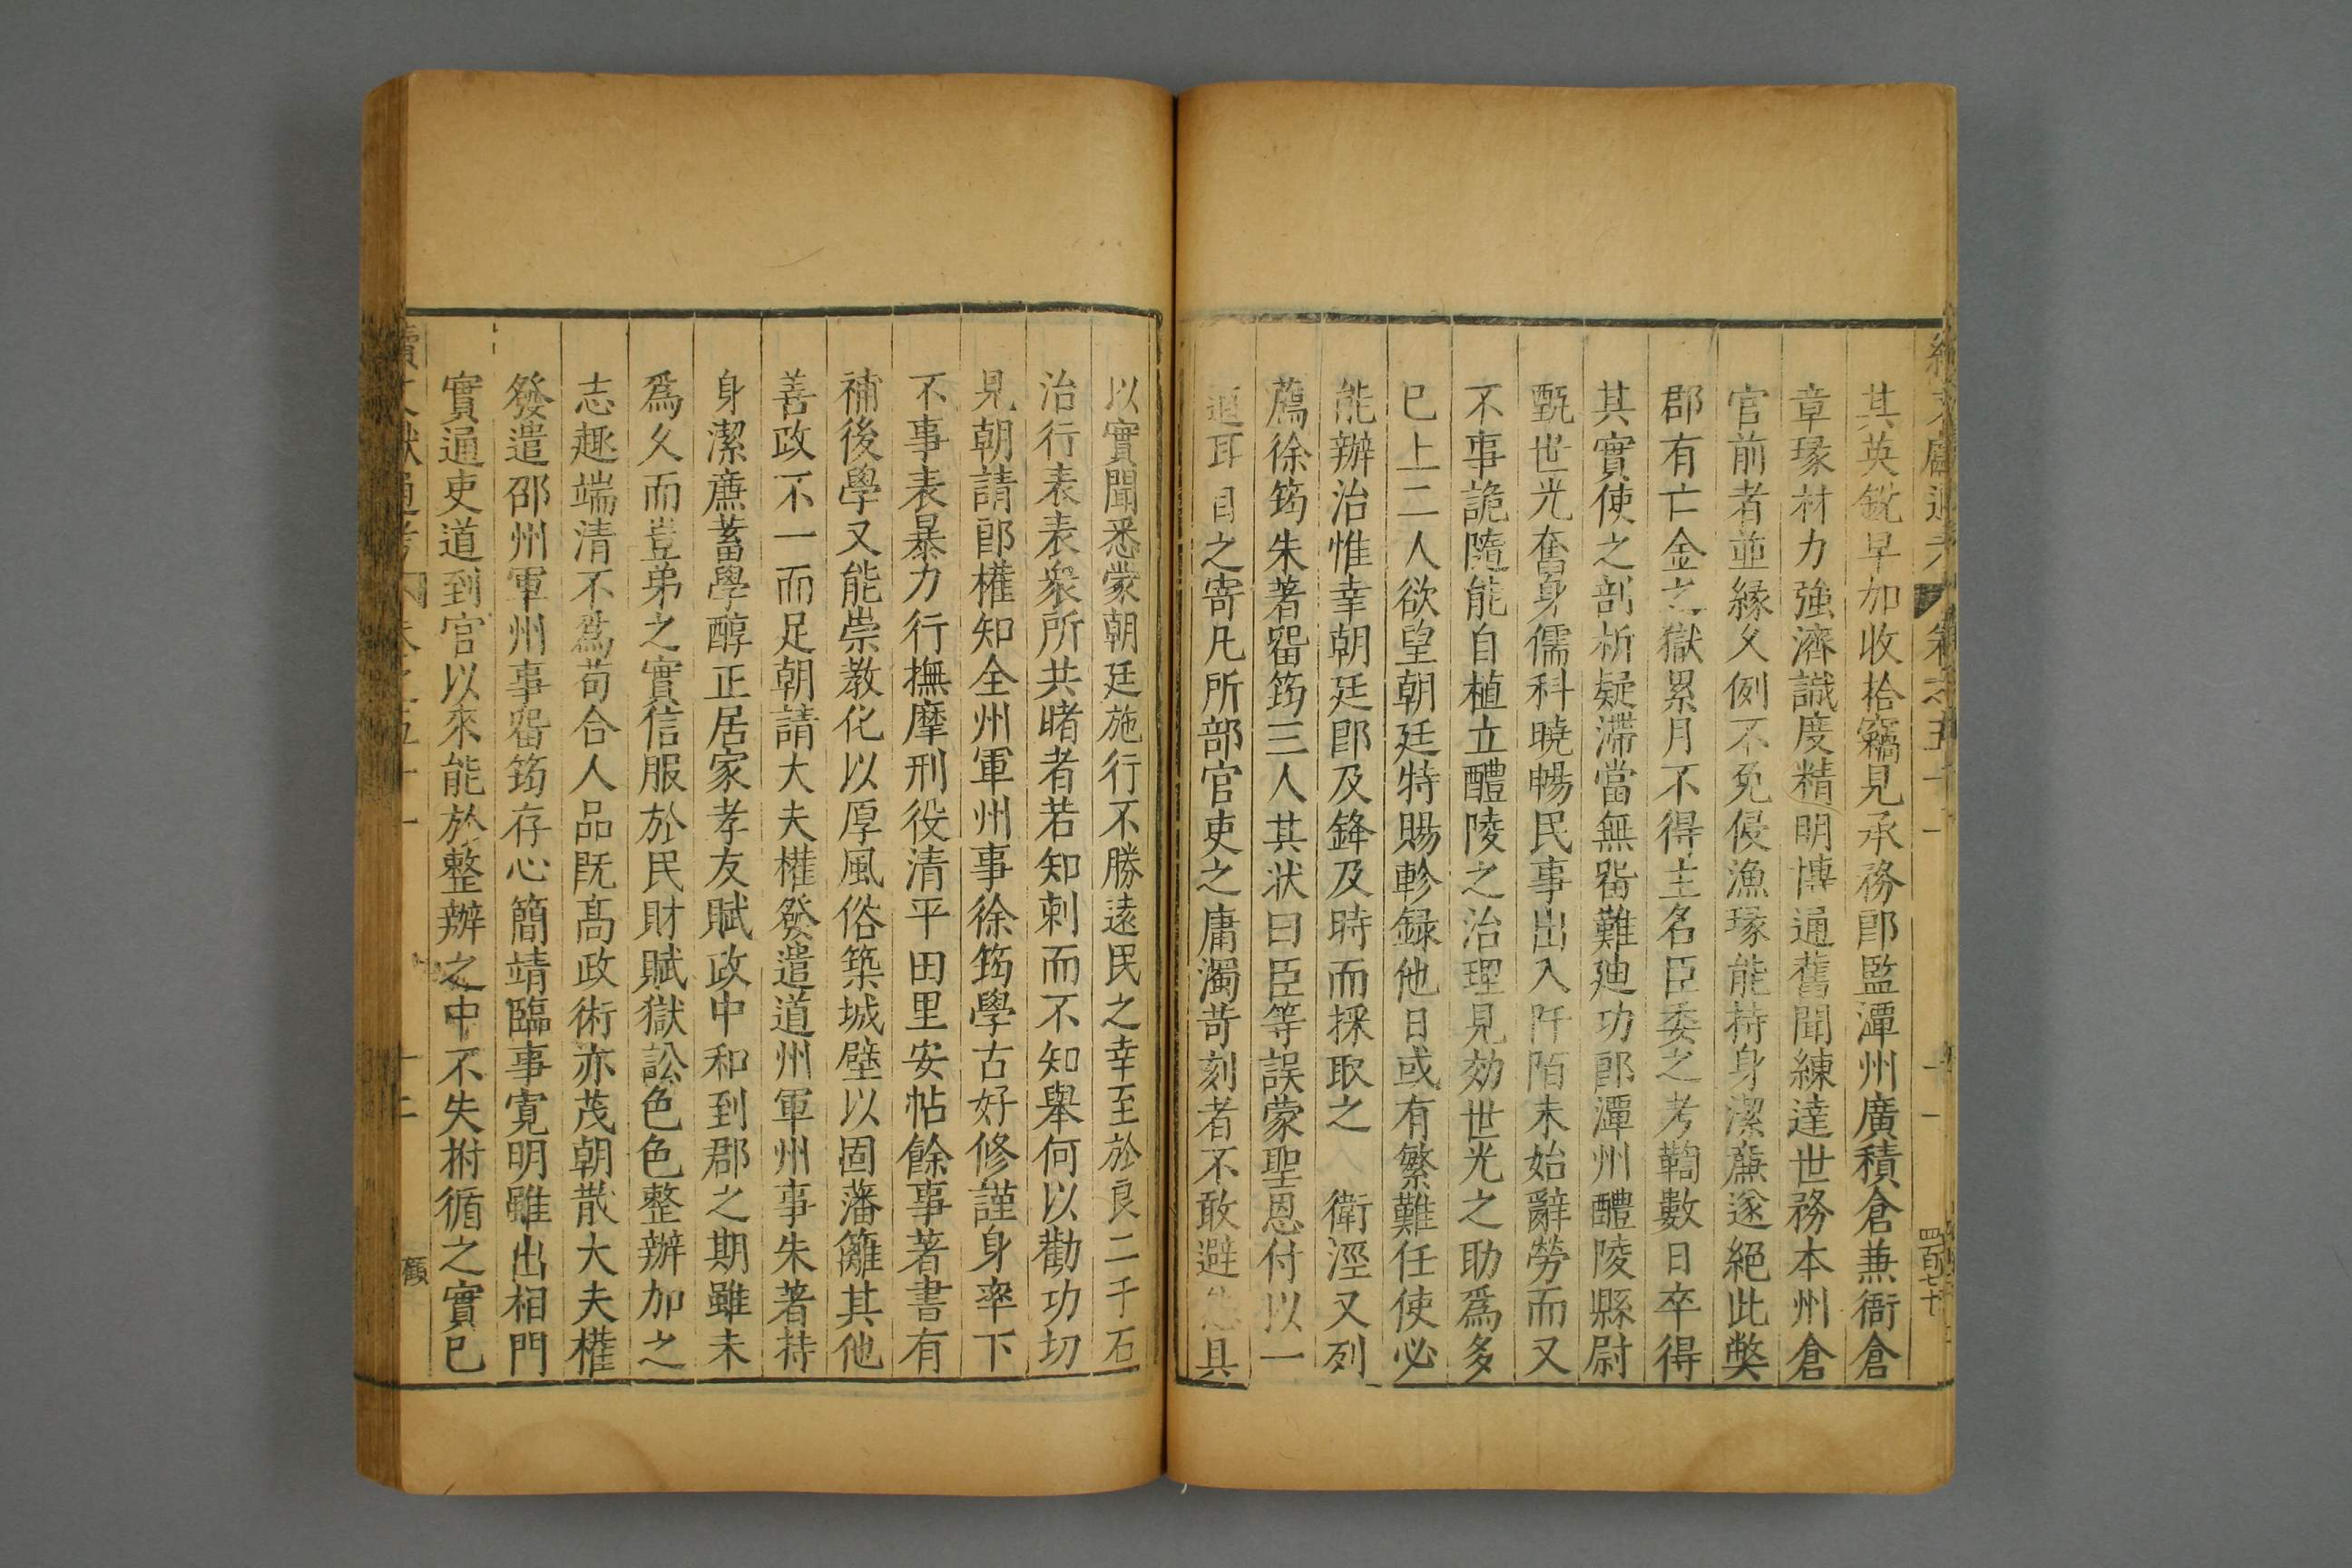 其英銳早加收拾竊見承務郎監潭州廣積倉兼衙倉
章瑑材力強濟識度精明博通舊聞練達世務本州倉
官前者並緣久例不免侵漁瑑能持身潔亷遂絕此弊
郡有亡金之獄累月不得主名臣委之考鞫數日卒得
其實使之剖析疑滯當無畱難廸功郎潭州醴陵縣尉
甄世光奮身儒科曉暢民事出入阡陌未始辭勞而又
不事詭隨能自植立醴陵之治理見効世光之助爲多
已上二人欲望朝廷特賜軫録他日或有繁難任使必
能辦治惟幸朝廷卽及鋒及時而採取之 衛涇又列
薦徐筠朱著畱筠三人其狀曰臣等誤蒙聖恩付以一
道耳目之寄凡所部官吏之庸濁苛刻者不敢避 具
以實聞悉蒙朝廷施行不勝遠民之幸至於良二千石
治行表表衆所共睹者若知刺而不知舉何以勸功切
見朝請郎權知全州軍州事徐筠學古好修謹身率下
不事表暴力行撫摩刑役清平田里安帖餘事著書有
補後學又能崇教化以厚風俗築城壁以固藩籬其他
善政不一而足朝請大夫權發遣道州軍州事朱著持
身潔亷蓄學醇正居家孝友賦政中和到郡之期雖未
爲久而豈弟之實信服於民財賦獄訟色色整辦加之
志趣端清不爲苟合人品旣高政術亦茂朝散大夫權
發遣邵州軍州事畱筠存心簡靖臨事寬明雖出相門
實通吏道到官以來能於整辦之中不失拊循之實已
續文獻通考 卷之五十一 十二